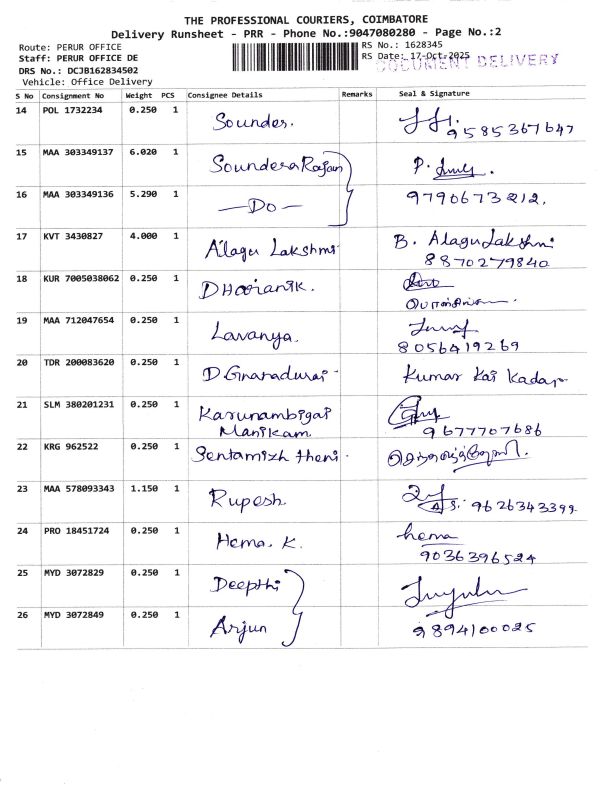 THE PROFESSIONAL COURIERS, COIMBATORE
Delivery Runsheet - PRR - Phone No.:9047080280 - Page No.:2
Route: PERUR OFFICE
RS No.: 1628345
Staff: PERUR OFFICE DE
RS Date: 17-Oct-2025
DOCUMENT DELIVERY
DRS No.: DCJB162834502
Vehicle: Office Delivery
S No Consignment No Weight PCS Consignee Details Remarks Seal & Signature
14 POL 1732234 0.250 1 Sounder. 9585367647
15 MAA 303349137 6.020 1 SounderaRajan P.
16 MAA 303349136 5.290 1 —Do— 9790673212.
17 KVT 3430827 4.000 1 Alagu Lakshmi B. Alagu Lakshmi
8870279840
18 KUR 7005038062 0.250 1
19 MAA 712047654 0.250 1 Lavanya.
8056419269
20 TDR 200083620 0.250 1 D. Kumar Kai
21 SLM 380201231 0.250 1 Karunambigai
Manikam 9677707686
22 KRG 962522 0.250 1 Sentamizh theni.
23 MAA 578093343 1.150 1 Rupesh
9626343399
24 PRO 18451724 0.250 1 Hema. K. hema
9036396524
25 MYD 3072829 0.250 1 Deepthi
26 MYD 3072849 0.250 1 Arjun 9894100025